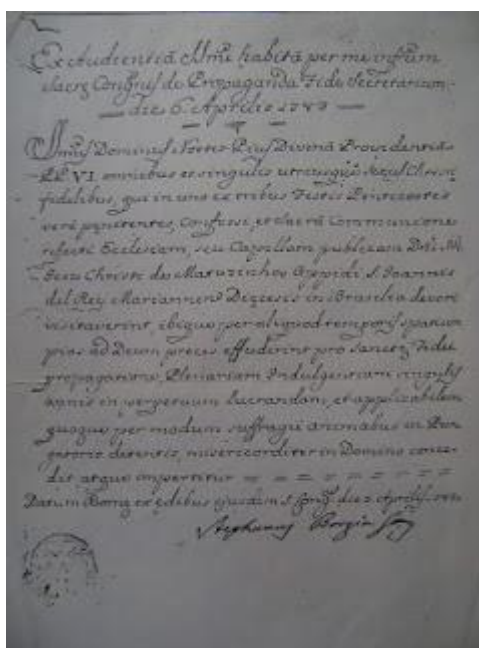 Ex Audientiâ SSmi habitâ per me infrũm
Sacrę Congñis de Propaganda Fide Secretarium
die 6. Aprilis
SSmus Dominus Noster Pius Divinâ Providentiâ
PP. VI. omnibus et singulis utriusque sexus Christi
fidelibus, qui in uno ex tribus Festis Pentecostes
verè pęnitentes, confessi, et sacrâ Communione
refecti Ecclesiam, seu Capellam publicam
Jesu Christi de Matuzinhos Oppidi S. Joannis
del Rey Mariannen Dięcesis in Brasilia devotè
visitaverint, ibique per aliquod temporis spatium
pias ad Deum preces effuderint pro Sanctę Fidei
propagatione, Plenariam Indulgentiam singulis
annis in perpetuum lucrandam, et applicabilem
quoque per modum suffragii animabus in Pur-
gatorio detentis, misericorditer in Domino conce-
dit atque impertitur
Datum Romę ex ędibus ejusdem S. Congñis die Aprilis
Stephanus Borgia